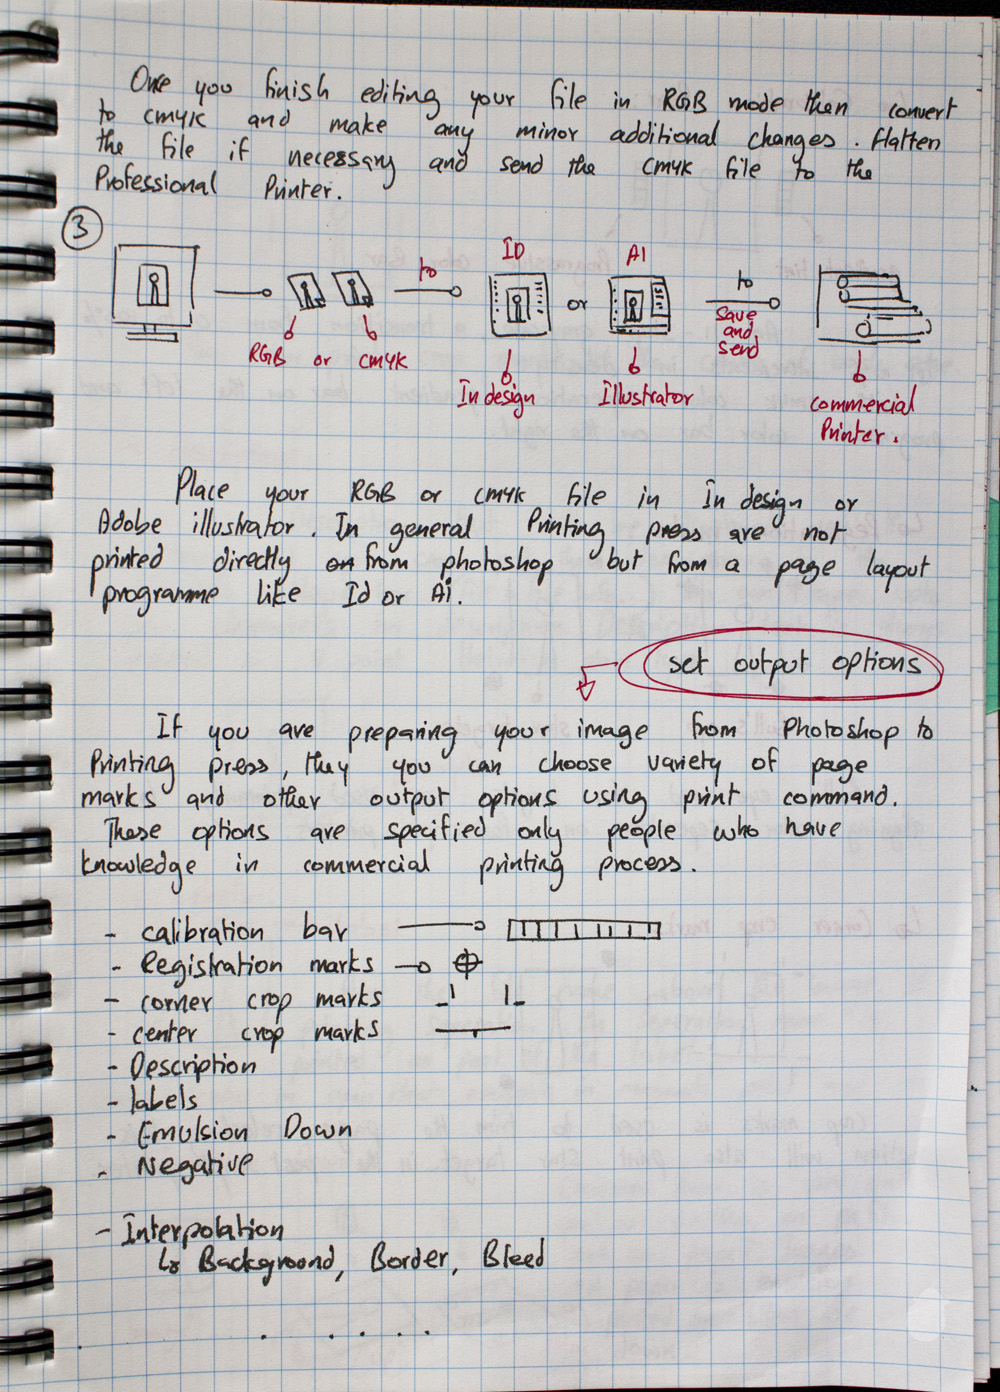 Once you finish editing your file in RGB mode then convert
to CMYK and make any minor additional changes. Flatten
the file if necessary and send the CMYK file to the
Professional Printer.
3
ID
AI
to
or
to
Save
and
send
RGB or CMYK
In design
Illustrator
commercial
Printer.
Place your RGB or CMYK file in In design or
Adobe illustrator. In general Printing press are not
printed directly from photoshop but from a page layout
programme like Id or Ai.
set output options
If you are preparing your image from Photoshop to
Printing press, they you can choose variety of page
marks and other output options using print command.
These options are specified only people who have
knowledge in commercial printing process.
- calibration bar
- Registration marks
- corner crop marks
- center crop marks
- Description
- labels
- Emulsion Down
- Negative
- Interpolation
Background, Border, Bleed
. . . . .